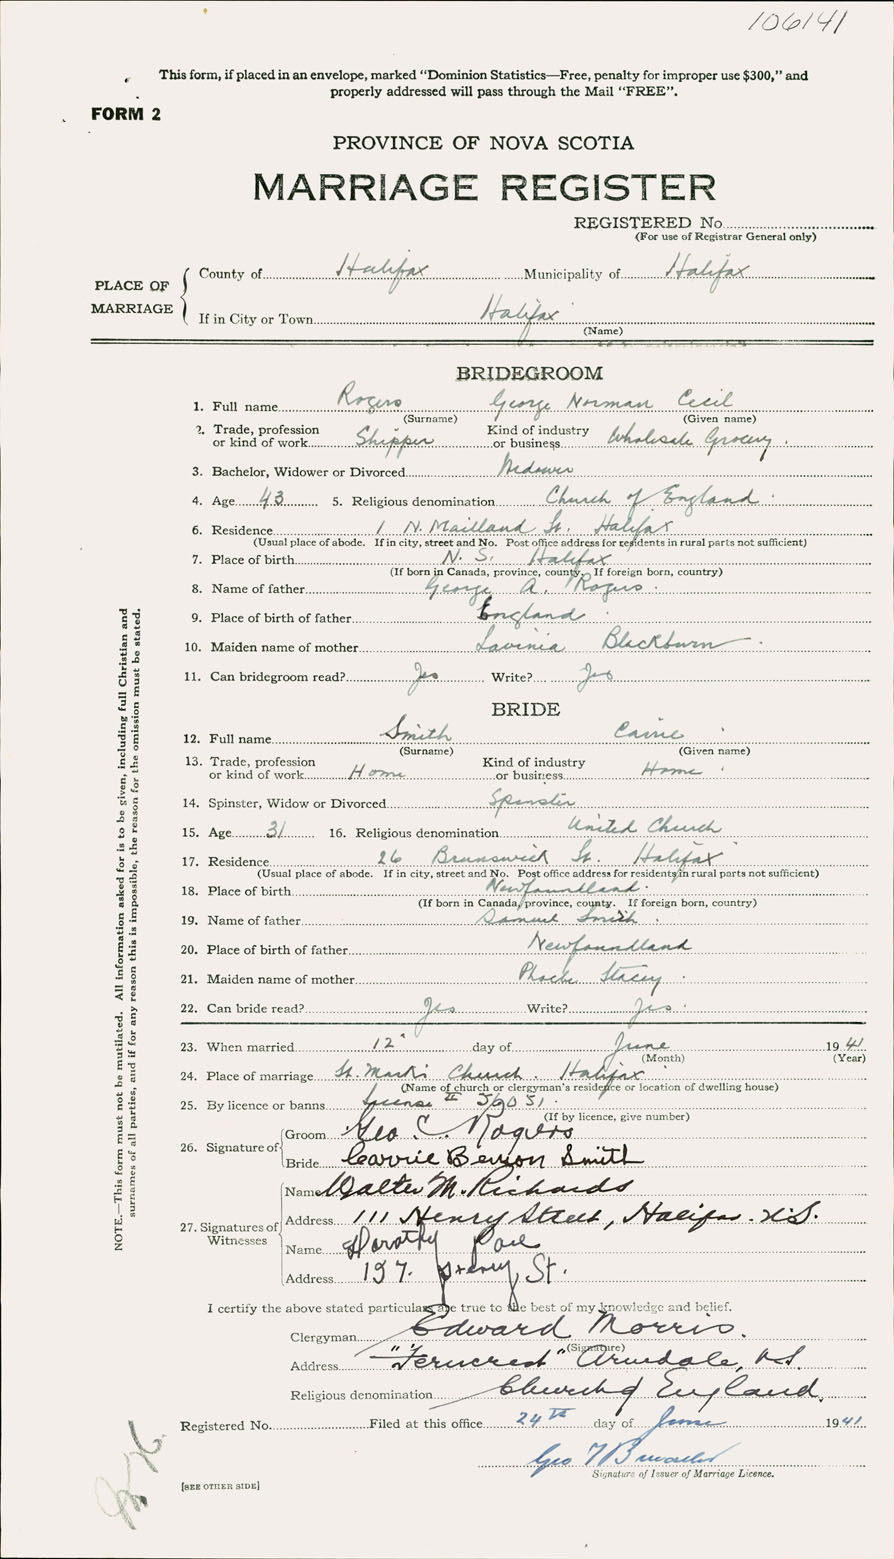 106141
This form, if placed in an envelope, marked "Dominion Statistics—Free, penalty for improper use $300," and
properly addressed will pass through the Mail "FREE".
FORM 2
PROVINCE OF NOVA SCOTIA
MARRIAGE REGISTER
REGISTERED No.
(For use of Registrar General only)
PLACE OF MARRIAGE
County of Halifax Municipality of Halifax
If in City or Town Halifax
(Name)
BRIDEGROOM
1. Full name Rogers George Norman Cecil
(Surname) (Given name)
2. Trade, profession or kind of work Shipper Kind of industry or business Wholesale Grocery.
3. Bachelor, Widower or Divorced Widower
4. Age 43 5. Religious denomination Church of England
6. Residence 1 N. Maitland St. Halifax
(Usual place of abode. If in city, street and No. Post office address for residents in rural parts not sufficient)
7. Place of birth N. S. Halifax
(If born in Canada, province, county. If foreign born, country)
8. Name of father George A. Rogers.
9. Place of birth of father England
10. Maiden name of mother Lavinia Blackburn
11. Can bridegroom read? Yes Write? Yes
BRIDE
12. Full name Smith Carrie
(Surname) (Given name)
13. Trade, profession or kind of work Home Kind of industry or business Home
14. Spinster, Widow or Divorced Spinster
15. Age 31 16. Religious denomination United Church
17. Residence 26 Brunswick St. Halifax
(Usual place of abode. If in city, street and No. Post office address for residents in rural parts not sufficient)
18. Place of birth Newfoundland.
(If born in Canada, province, county. If foreign born, country)
19. Name of father Samuel Smith.
20. Place of birth of father Newfoundland
21. Maiden name of mother Phoebe Stacey
22. Can bride read? Yes Write? Yes
23. When married 12" day of June 1941
(Month) (Year)
24. Place of marriage St. Mark's Church. Halifax
(Name of church or clergyman's residence or location of dwelling house)
25. By licence or banns license
(If by licence, give number)
26. Signature of
Groom Geo C. Rogers
Bride Carrie Benson Smith
27. Signatures of Witnesses
Name Walter M. Richards
Address 111 Henry Street, Halifax. N.S.
Name Dorothy
Address 197. Henry St.
I certify the above stated particulars are true to the best of my knowledge and belief.
Clergyman Edward Morris.
(Signature)
Address "Ferncrest" Armdale, N.S.
Religious denomination Church of England.
Registered No. Filed at this office 24th day of June 1941
Geo
Signature of Issuer of Marriage Licence.
[SEE OTHER SIDE]
NOTE.—This form must not be mutilated. All information asked for is to be given, including full Christian and
surnames of all parties, and if for any reason this is impossible, the reason for the omission must be stated.